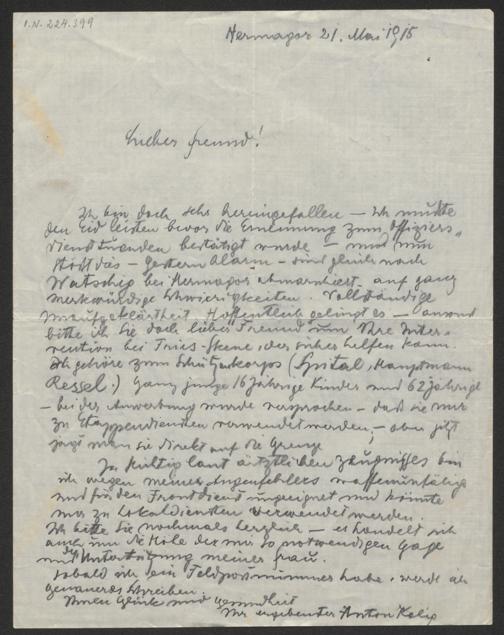 I.N. 224.399
Hermagor 21. Mai 1915
Lieber Freund!
Ich bin doch sehr hereingefallen – ich mußte
den Eid leisten bevor die Ernennung zum Offiziers-
dienst tuenden bestätigt wurde – und nun
dies – gestern Alarm – sind gleich nach
Watschig bei Hermagor abmarschiert auf ganz
merkwürdige Schwierigkeiten. Vollständige
Unaufgeklärtheit. Hoffentlich gelingt es –
bitte ich Sie doch lieber Freund um Ihre Inter-
vention bei der sicher helfen kann.
Ich gehöre zum Schützenkorps (Spital, Hauptmann
Ressel.) Ganz junge 16 jährige Kinder und 62 jährige
– bei der Anwerbung wurde versprochen – daß sie nur
zu Etappendiensten verwendet werden, – aber jetzt
jagt man sie direkt auf die Grenze
laut ärztlichen Zeugnisses bin
ich wegen meines Augenfehlers waffenunfähig
und für den Frontdienst ungeeignet und könnte
nur zu Lokaldiensten verwendet werden.
Ich bitte Sie nochmals herzlich – es handelt sich
auch um die mir so notwendigen Gage
und Unterstützung meiner Frau.
Sobald ich ein Feldpostnummer habe, werde ich
genaueres schreiben.
Ihnen Glück und Gesundheit
Ihr ergebenster Anton Kolig